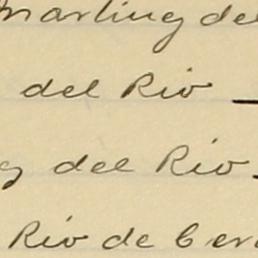 Martinez del
del Rio
del Rio
Rio de